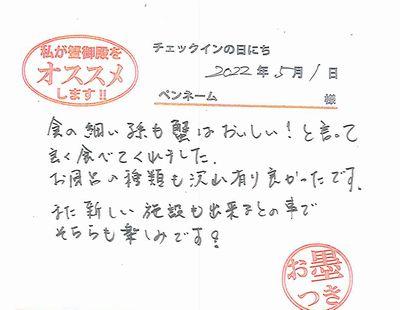 私が蟹御殿を
オススメ
します!!
チェックインの日にち
2022年5月1日
ペンネーム 様
食の細い孫も蟹はおいしい!と言って
良く食べてくれました.
お風呂の種類も沢山有り良かったです.
また新しい施設も出来るとの事で
そちらも楽しみです!
お墨
つき